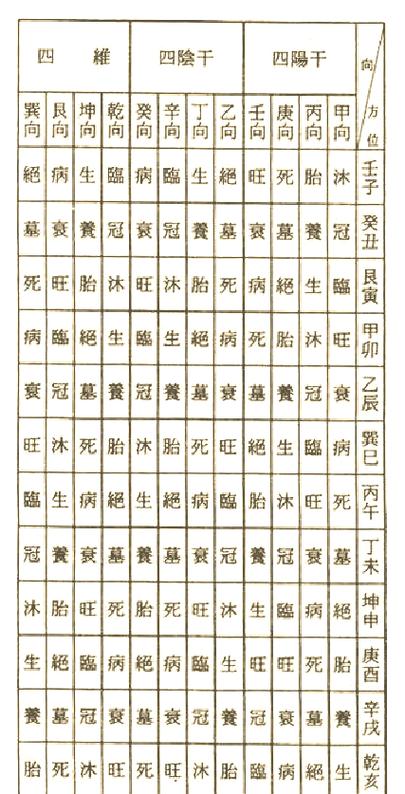 四 維 四陰干 四陽干 向 方 位
巽向 艮向 坤向 乾向 癸向 辛向 丁向 乙向 壬向 庚向 丙向 甲向
絕 病 生 臨 病 臨 生 絕 旺 死 胎 沐 壬子
墓 衰 養 冠 衰 冠 養 墓 衰 墓 養 冠 癸丑
死 旺 胎 沐 旺 沐 胎 死 病 絕 生 臨 艮寅
病 臨 絕 生 臨 生 絕 病 死 胎 沐 旺 甲卯
衰 冠 墓 養 冠 養 墓 衰 墓 養 冠 衰 乙辰
旺 沐 死 胎 沐 胎 死 旺 絕 生 臨 病 巽巳
臨 生 病 絕 生 絕 病 臨 胎 沐 旺 死 丙午
冠 養 衰 墓 養 墓 衰 冠 養 冠 衰 墓 丁未
沐 胎 旺 死 胎 死 旺 沐 生 臨 病 絕 坤申
生 絕 臨 病 絕 病 臨 生 旺 旺 死 胎 庚酉
養 墓 冠 衰 墓 衰 冠 養 冠 衰 墓 養 辛戌
胎 死 沐 旺 死 旺 沐 胎 臨 病 絕 生 乾亥